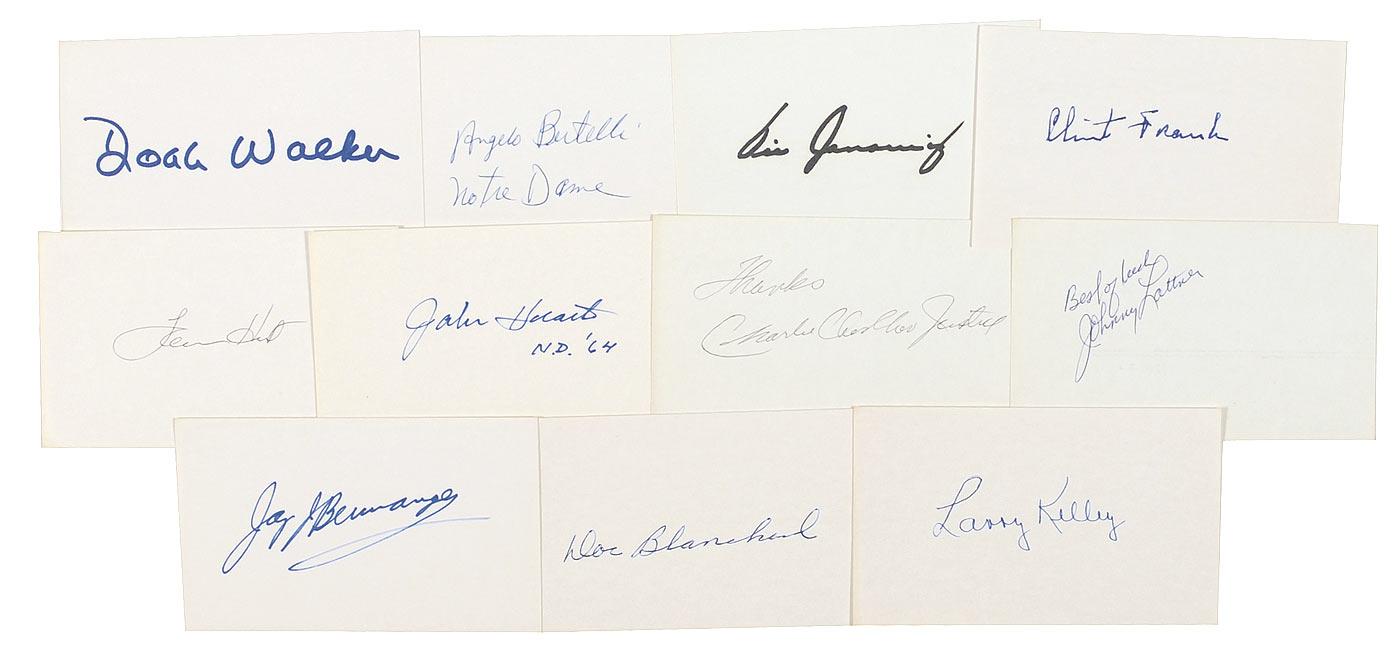 Doak Walker
Angelo Bertelli
Notre Dame
Vic Janowicz
Clint Frank
John Huarte
N.D. '64
Thanks
Charlie Choo Choo Justice
Best of luck
Johnny Lattner
Jay J Berwanger
Doc Blanchard
Larry Kelley